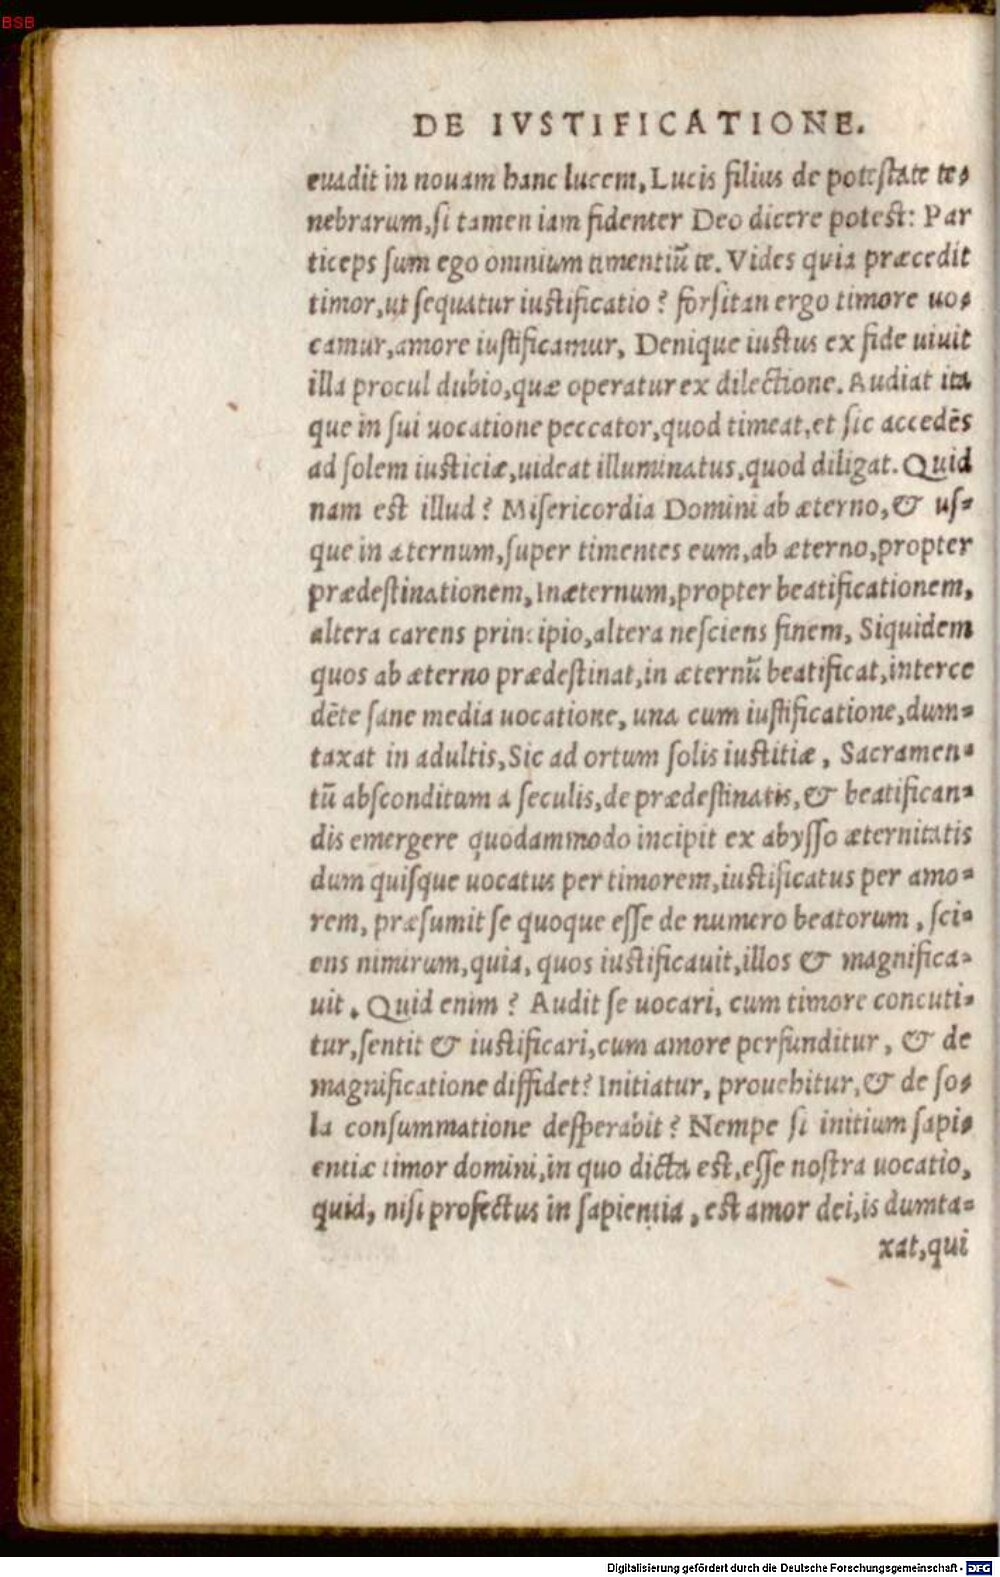 BSB
DE IVSTIFICATIONE.
euadit in nouam hanc lucem, Lucis filius de potestate te⸗
nebrarum, si tamen iam fidenter Deo dicere potest: Par
ticeps sum ego omnium timentiũ te. Vides quia præcedit
timor, ut sequatur iustificatio? forsitan ergo timore uo⸗
camur, amore iustificamur, Denique iustus ex fide uiuit
illa procul dubio, quæ operatur ex dilectione. Audiat ita
que in sui uocatione peccator, quod timeat, et sic accedẽs
ad solem iusticiæ, uideat illuminatus, quod diligat. Quid
nam est illud? Misericordia Domini ab æterno, & us⸗
que in æternum, super timentes eum, ab æterno, propter
prædestinationem, Inæternum, propter beatificationem,
altera carens principio, altera nesciens finem, Siquidem
quos ab æterno prædestinat, in æternũ beatificat, interce
dẽte sane media uocatione, una cum iustificatione, dum⸗
taxat in adultis, Sic ad ortum solis iustitiæ, Sacramen⸗
tũ absconditum a seculis, de prædestinatis, & beatifican⸗
dis emergere quodammodo incipit ex abysso æternitatis
dum quisque uocatus per timorem, iustificatus per amo⸗
rem, præsumit se quoque esse de numero beatorum, sci⸗
ens nimirum, quia, quos iustificauit, illos & magnifica⸗
uit. Quid enim? Audit se uocari, cum timore concuti⸗
tur, sentit & iustificari, cum amore perfunditur, & de
magnificatione diffidet? Initiatur, prouehitur, & de so⸗
la consummatione desperabit? Nempe si initium sapi⸗
entiæ timor domini, in quo dicta est, esse nostra uocatio,
quid, nisi profectus in sapientia, est amor dei, is dumta⸗
xat, qui
Digitalisierung gefördert durch die Deutsche Forschungsgemeinschaft - DFG